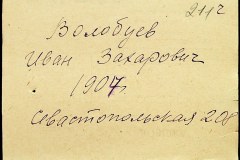 2112
Волобуев
Иван Захарович
1907
Севастопольская 208